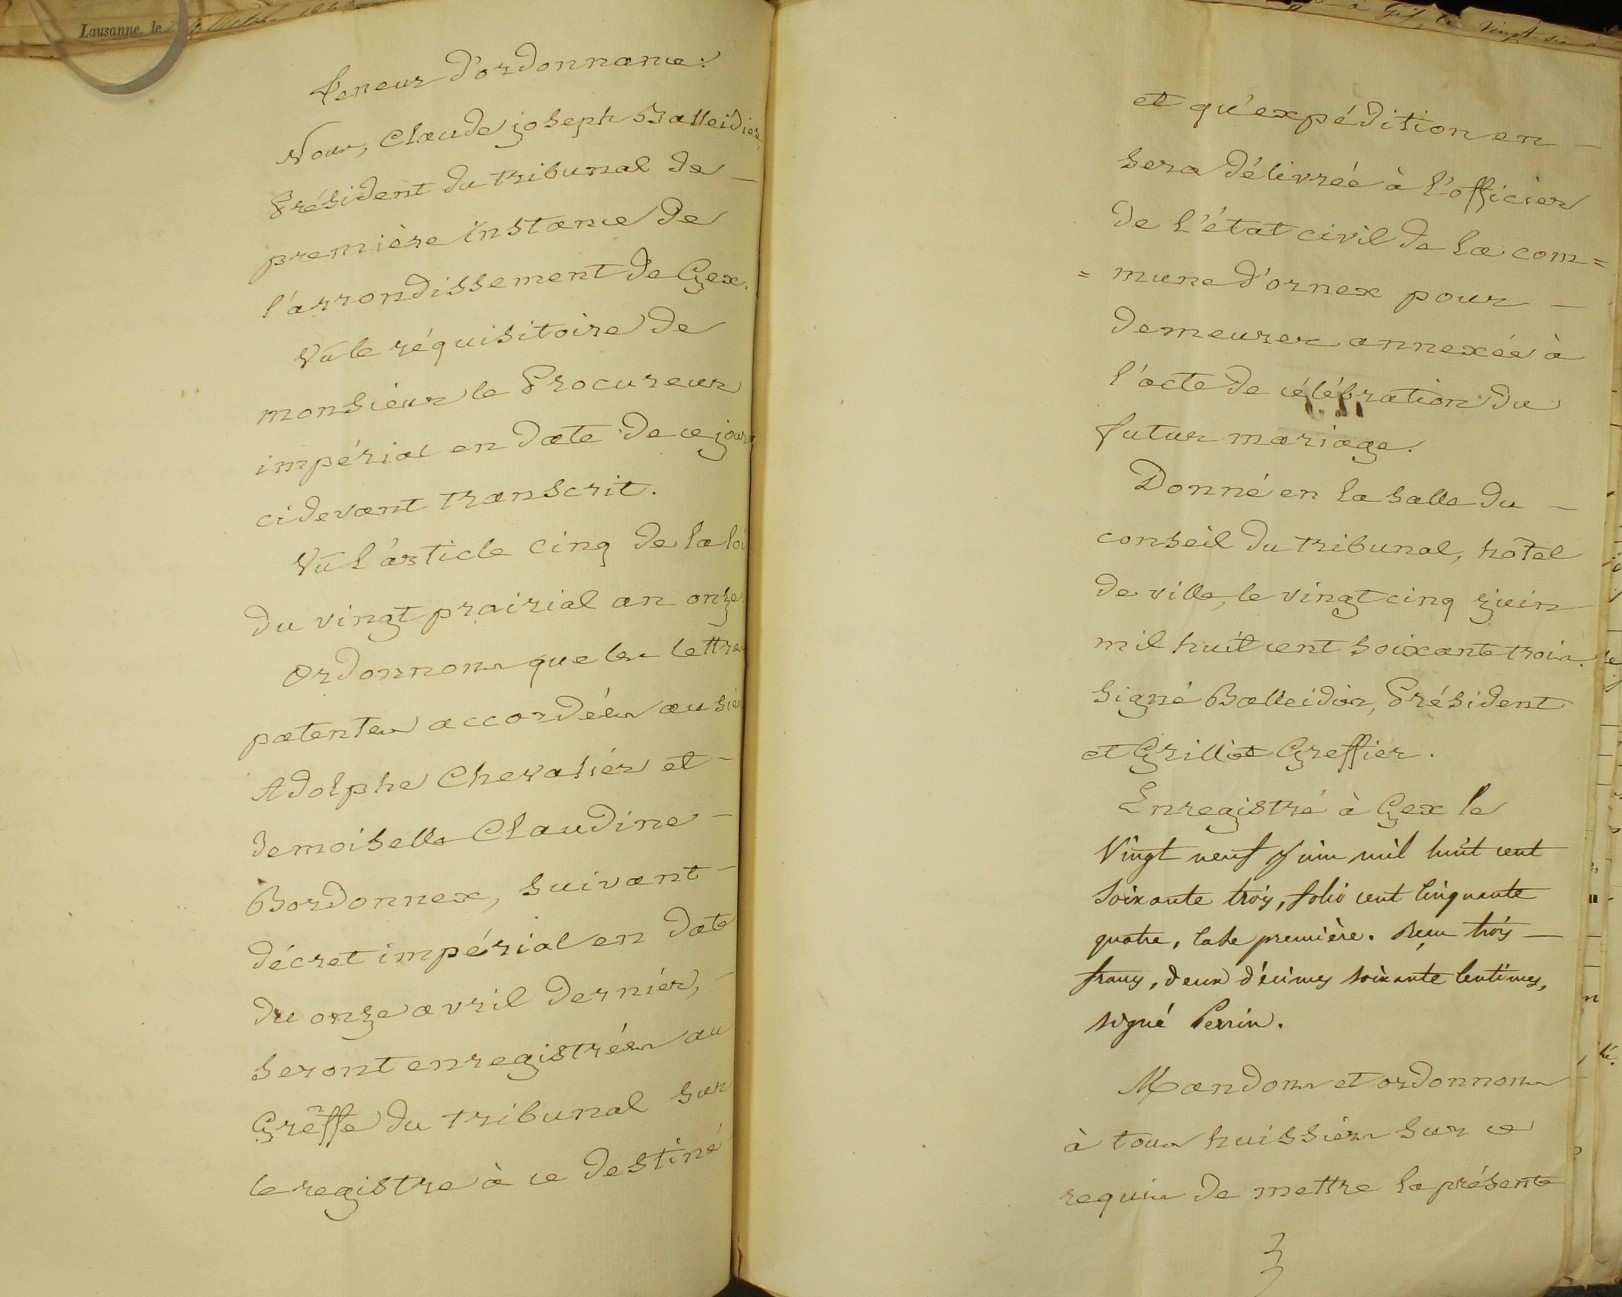 Lausanne, le
Teneur d'ordonnance.
Nous, Claude joseph Balleidier,
Président du tribunal de —
première instance de
l'arrondissement de Gex.
Vu le réquisitoire de
monsieur le Procureur
impérial en date de ce jour
cidevant transcrit.
Vu l'article cinq de la loi
du vingt prairial an onze
Ordonnons que les lettres
patentes accordées au sieur
Adolphe Chevalier et —
demoiselle Claudine —
Bordonnex, suivant —
décret impérial en date
du onze avril dernier, —
seront enregistrées au
Grêffe du tribunal sur
le registre à ce destiné
et qu'expédition en —
sera délivrée à l'officier
de l'état civil de la com=
= mune d'ornex pour —
demeurer annexée à
l'acte de célébration du
futur mariage.
Donné en la salle du —
conseil du tribunal, hôtel
de ville, le vingt cinq juin
mil huit cent soixante trois.
signé Balleidier, Président
et Grilliet Greffier.
Enregistré à Gex le
Vingt neuf Juin mil huit cent
soixante trois, folio cent cinquante
quatre, case première. Reçu trois —
francs, deux décimes soixante centimes,
signé Perrin.
Mandons et ordonnons
à tous huissiers sur ce
requis de mettre la présente